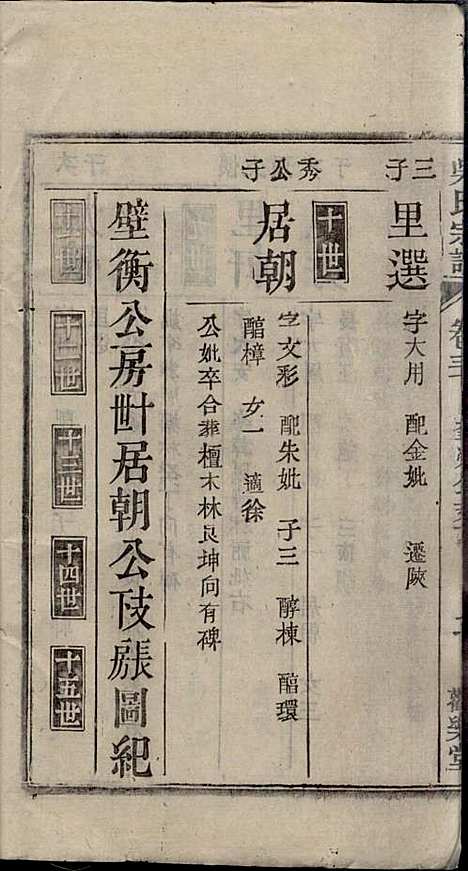 吳氏宗譜
三子
里選
字大用 配金妣 遷陝
十世
秀公子
居朝
字文彩 配朱妣 子三 醇棟 醕環
醕樟 女一 適徐
公妣卒合葬檀木林艮坤向有碑
壁衡公房世居朝公𢻫派圖紀
十一世
十二世
十三世
十四世
十五世